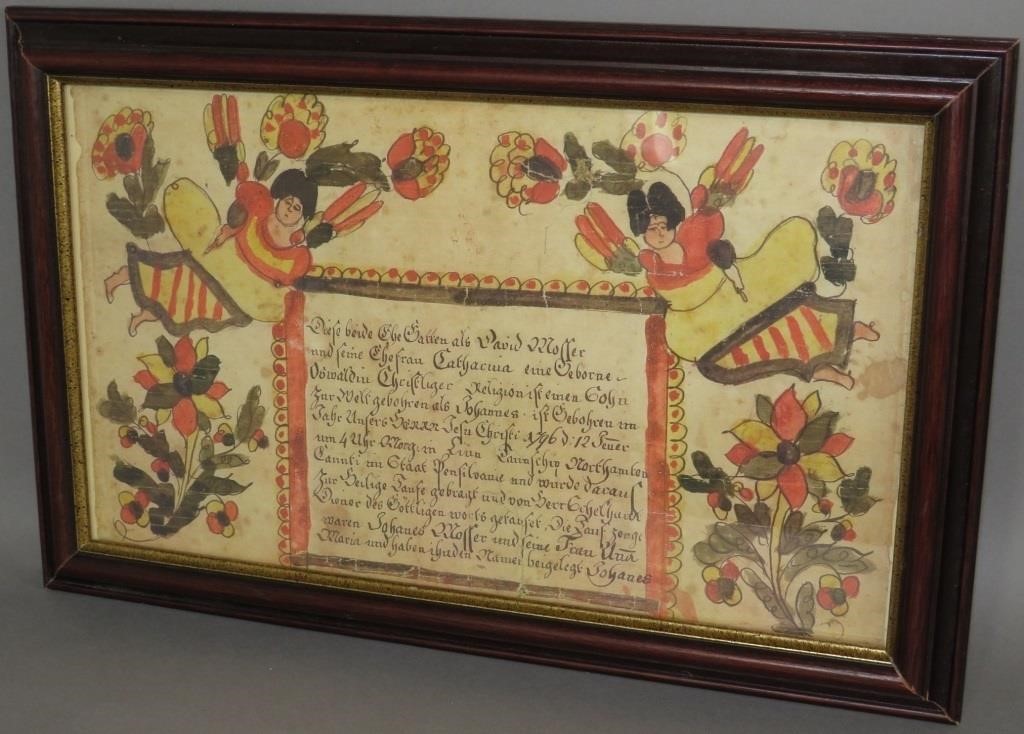 Diese beide Ehe Gatten als David Mosser
und seine Ehefrau Catharina eine Geborne
Oswaldin Christliger Religion ist einen Sohn
Zur Welt gebohren als Johannes. ist Gebohren im
Jahr Unsers HERRN Jesu Christi 1796 d: 12 Jenner
um 4 Uhr Morg: in Linn Taunschip Northamton
Caunti im Staat Pensilvanie und wurde darauf
Zur Heilige Taufe gebragt und von Herr Schelhardt
Diener des Göttligen worts getaufet. Die Tauf zeuge
waren Johanes Mosser und seine Frau Anna
Maria und haben ihn den Namen beigelegt Johanes